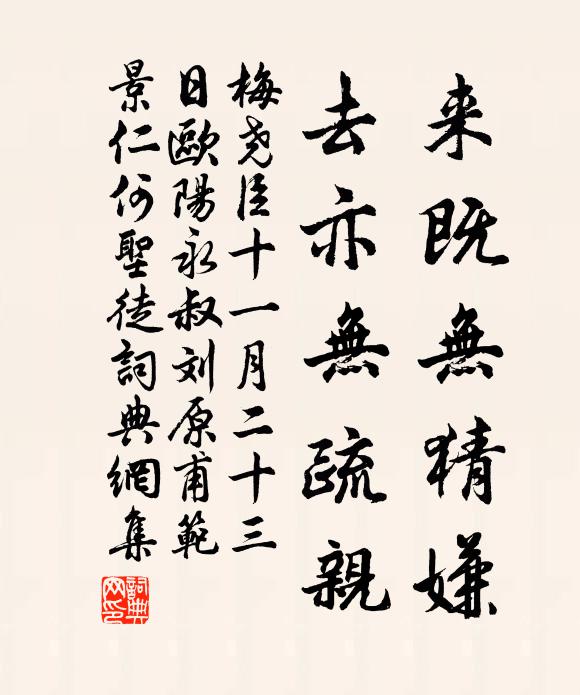 来既無猜嫌
去亦無疏親
梅尧臣十一月二十三
日歐陽永叔刘原甫範
景仁何聖徒詞典網集
詞典网印